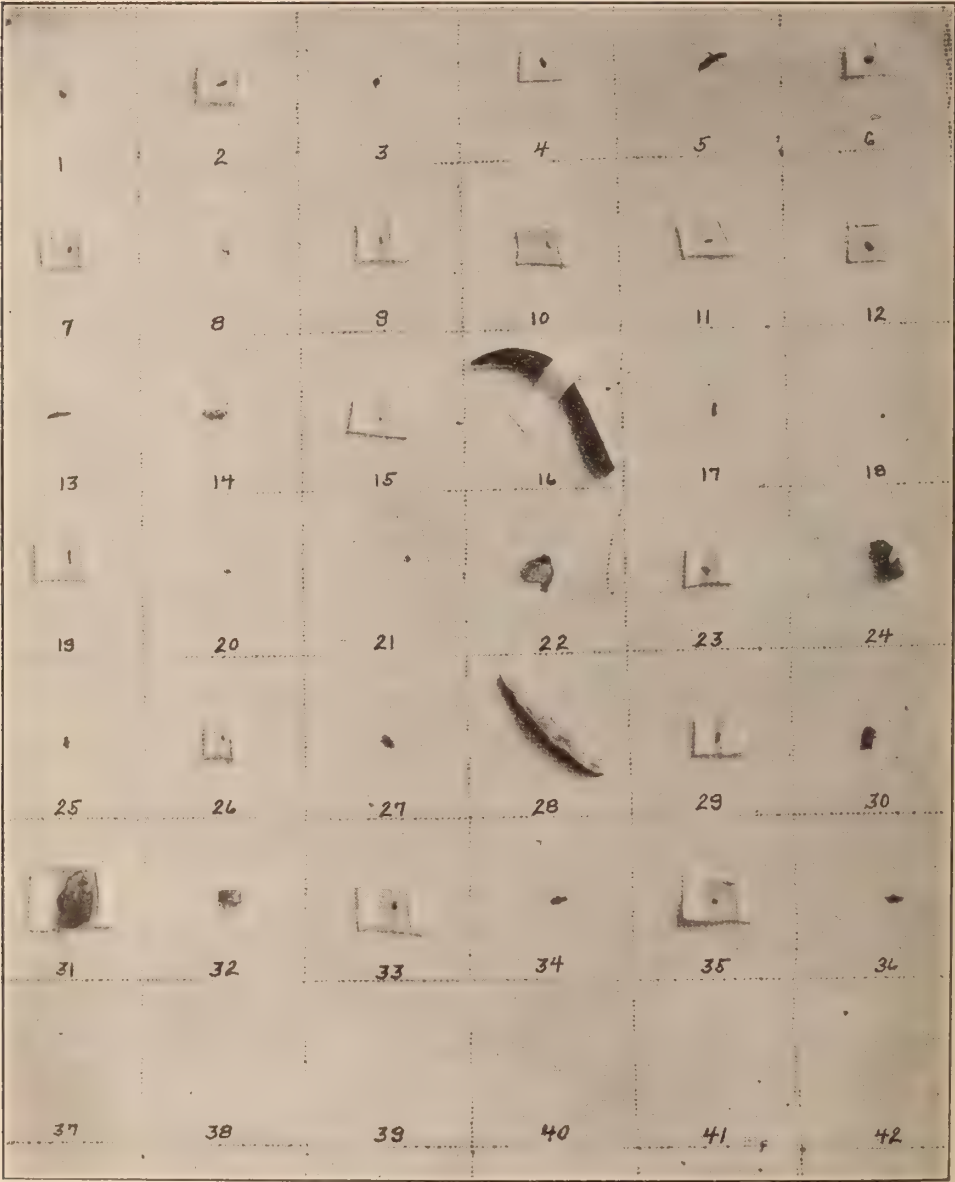 1 2 3 4 5 6
7 8 9 10 11 12
13 14 15 16 17 18
19 20 21 22 23 24
25 26 27 28 29 30
31 32 33 34 35 36
37 38 39 40 41 42